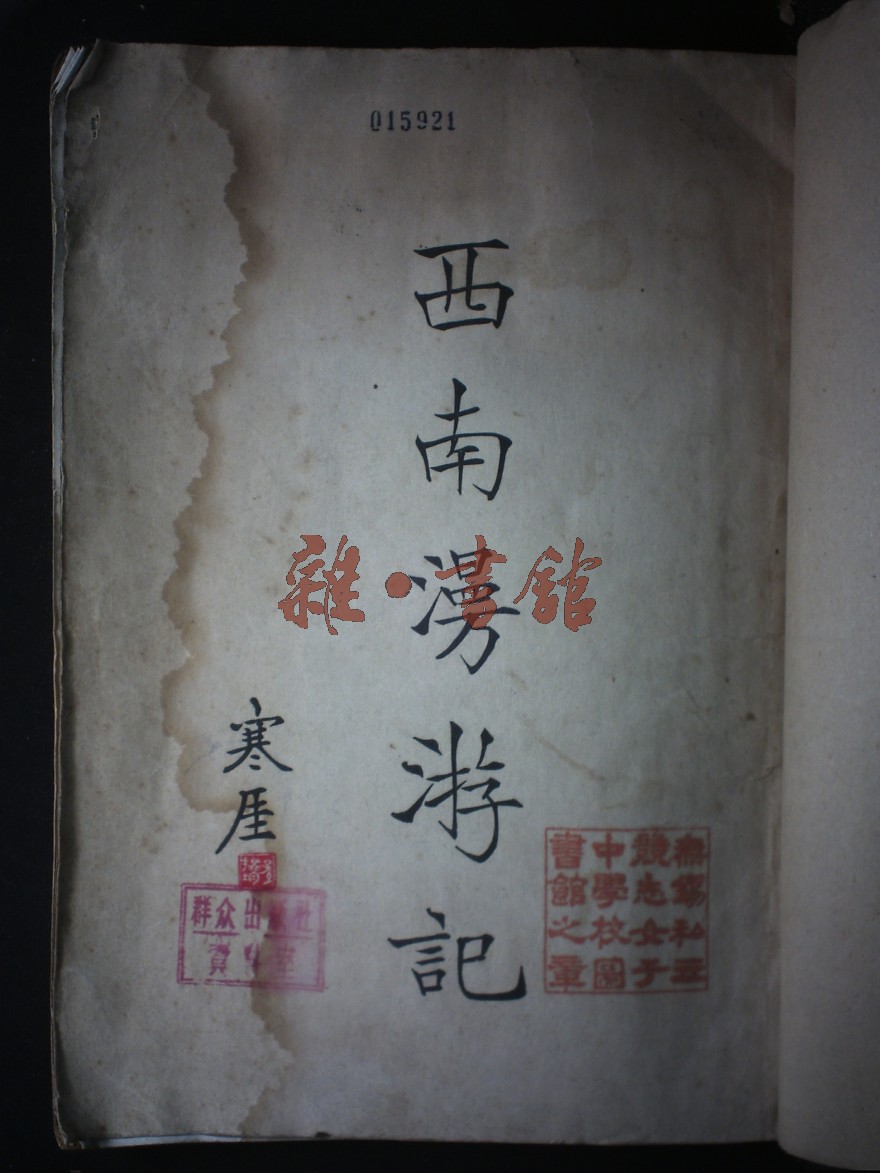 015921
西南漫游記
寒厓
無錫私立
競志女子
中學校圖
書館之章
群众出版社
資料室
雜·書館